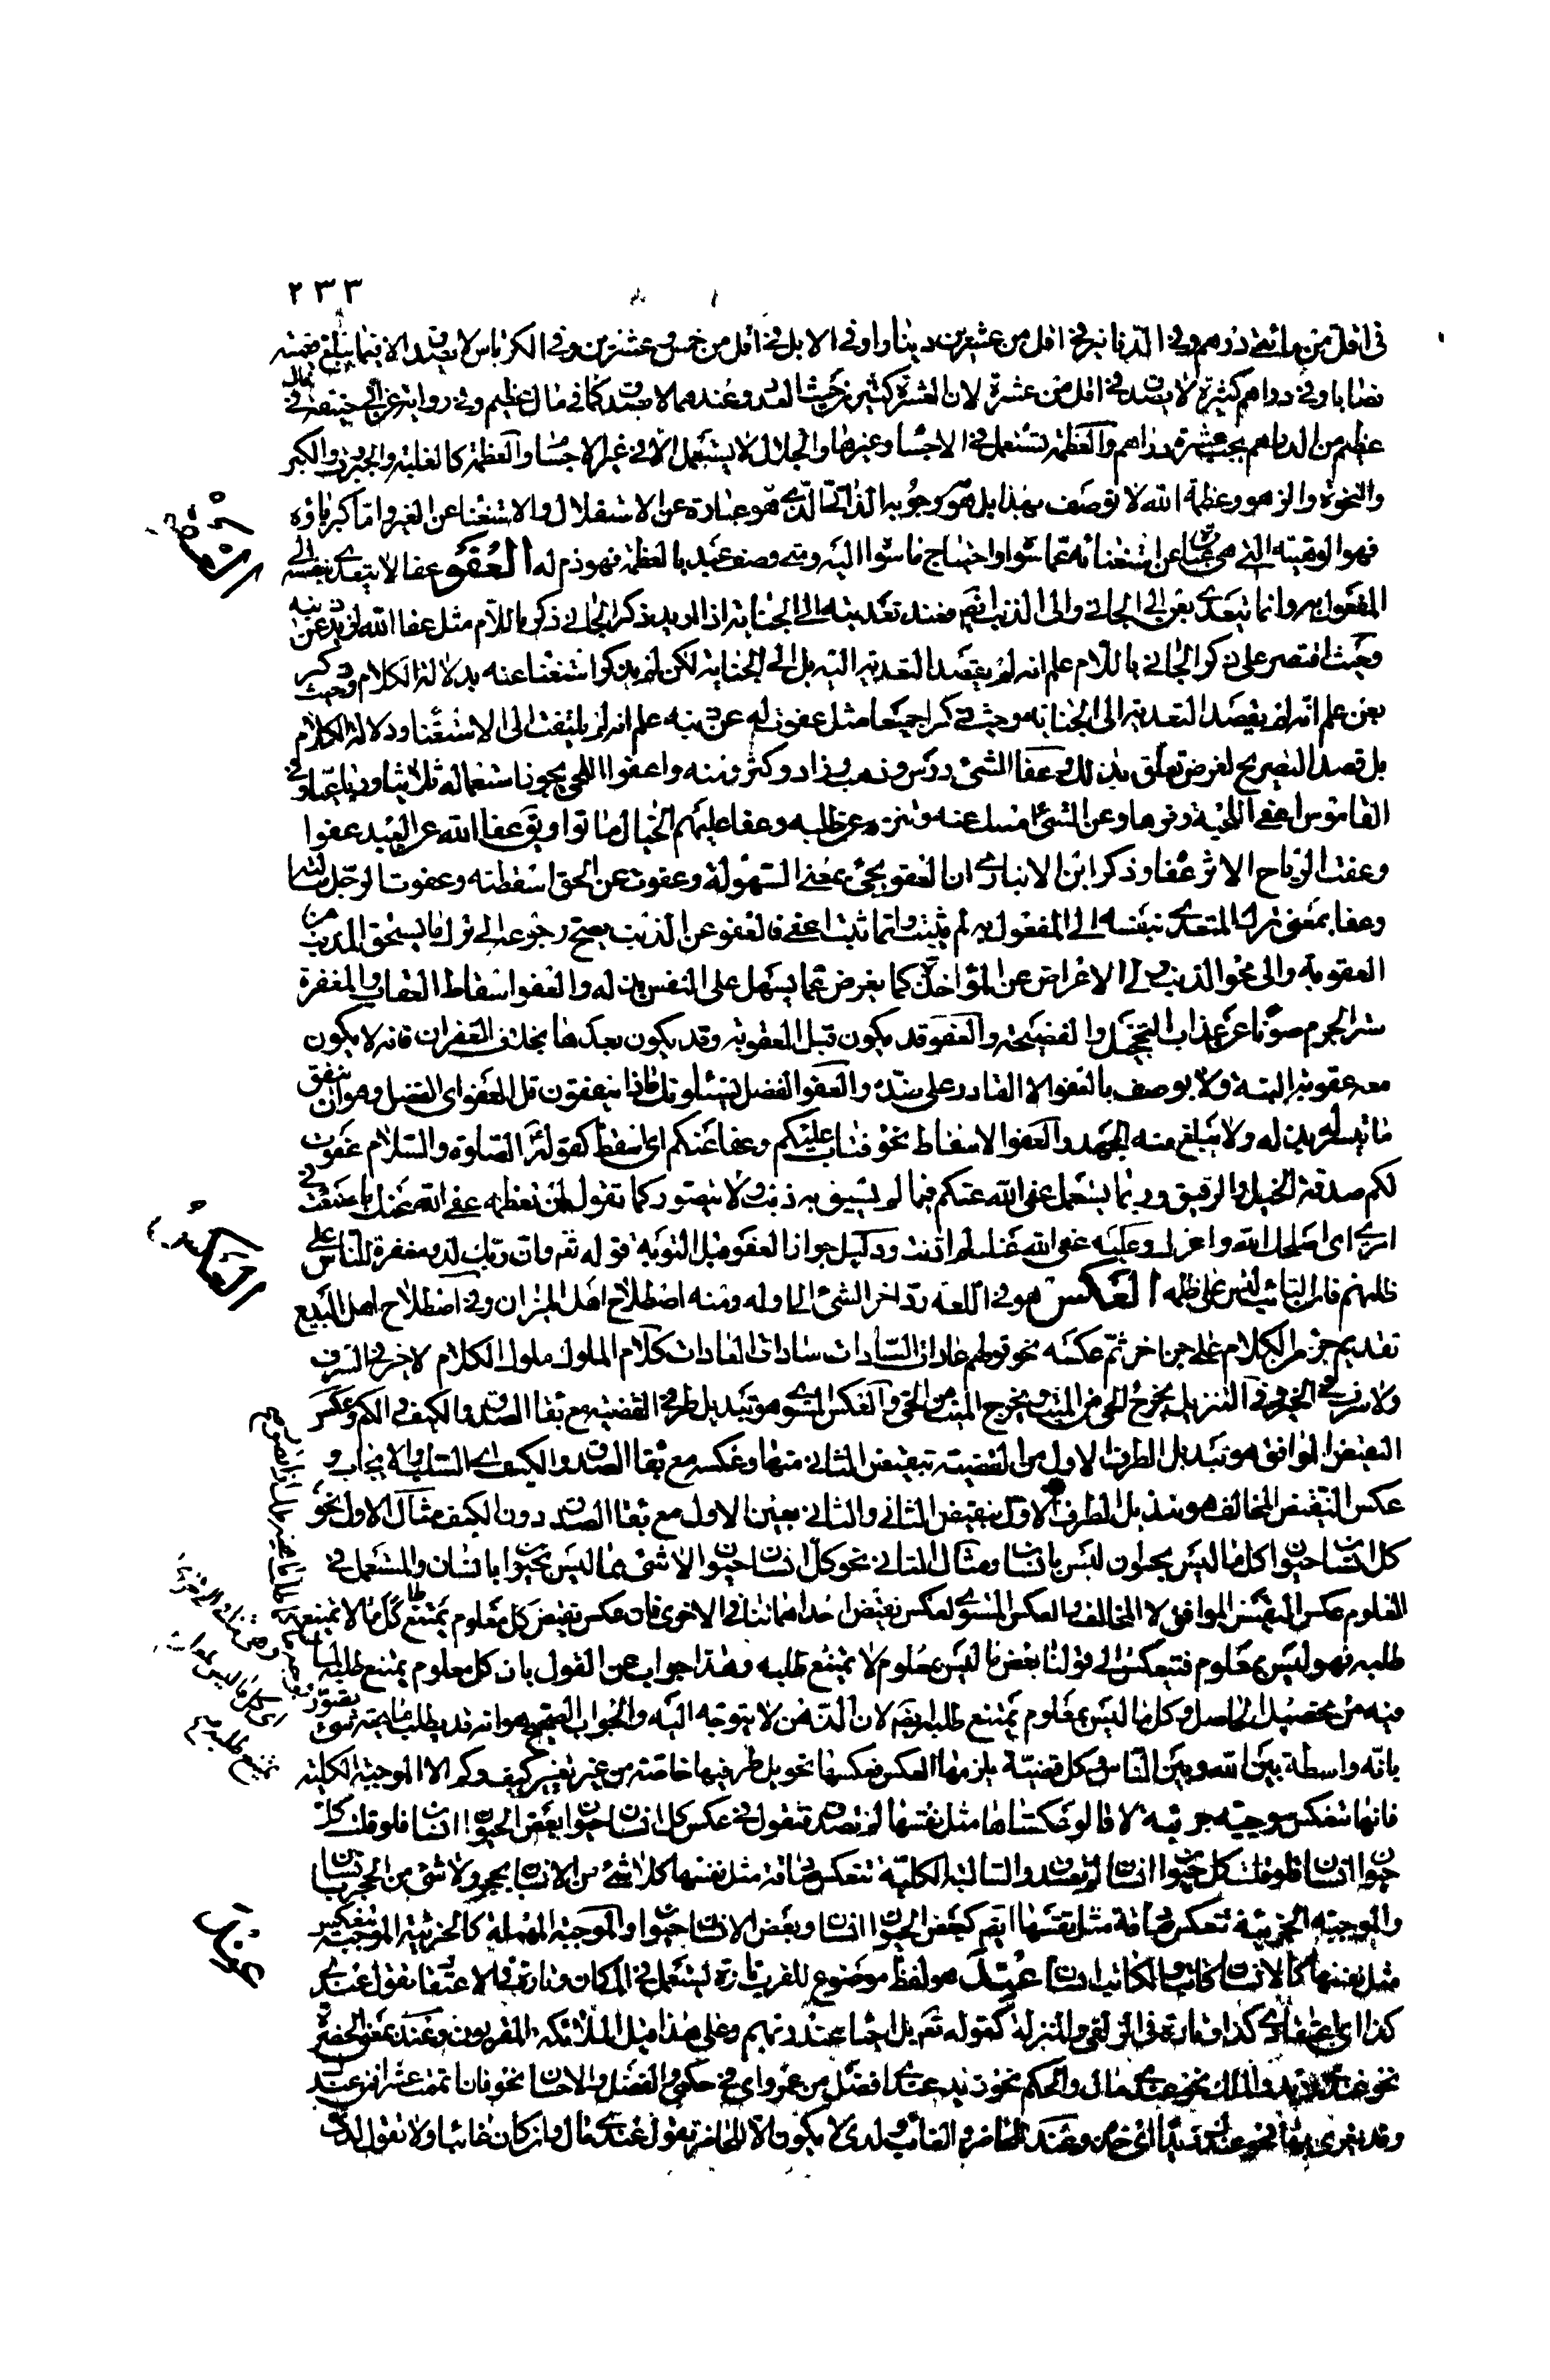 ٢٣٣
في اقل من مائتي درهم وفي الدنانير في اقل من عشرين دينارا وفي الابل في اقل من خمس وعشرين وفي الكرباس لا يصدق الا فيما يبلغ قيمته
نصابا وفي دراهم كثيرة لا يصدق في اقل من عشرة لان العشرة كثير من حيث العدد وعندهما لا يصدق كما في مال عظيم وفي رواية عن ابي حنيفة في مال
عظيم من الدراهم يجب عشرة دراهم والعظمة تستعمل في الاجسام وغيرها والجلال لا يستعمل الا في غير الاجسام والعظمة كالغلبة والجبروت والكبر
والنخوة والزهو وعظمة الله لا توصف بهذا بل هو وجوبه الذاتي الذي هو عبارة عن الاستقلال والاستغنا عن الغير واما كبرياؤه
فهو الوهيته التي هي عبارة عن استغنائه عما سواه واحتياج ما سواه اليه ومتى وصف عبد بالعظمة فهو ذم له العفو عفا لا يتعدى بنفسه الى
المفعول به وانما يتعدى بعن الى الجاني والى الذنب ايضا فعند تعديته الى الجناية اذا اريد ذكر الجاني ذكر باللام مثل عفا الله لزيد عن ذنبه
وحيث اقتصر على ذكر الجاني باللام علم انه لم يقصد التعدية اليه بل الى الجناية لكن لم يذكر استغنا عنه بدلالة الكلام وحيث ذكر
بعن علم انه لم يقصد التعدية الى الجناية وحيث ذكرا جميعا مثل عفوت له عن ذنبه علم انه لم يلتفت الى الاستغنا ودلالة الكلام
بل قصد التصريح لغرض تعلق بذلك وعفا الشئ درس وذهب وزاد وكثر ومنه واعفوا اللحى يجوز استعماله ثلاثيا ورباعيا وفي
القاموس اعفى اللحية وفرها وعن الشئ امسك عنه وتنزه عن طلبه وعفا عليهم الخيال ماتوا ويق عفا الله عن العبد عفوا
وعفت الرياح الاثر عفا وذكر ابن الانباري ان العفو يجئ بمعنى السهولة وعفوت عن الحق اسقطته وعفوت الرجل سألته
وعفا بمعنى ترك المتعدي بنفسه الى المفعول به لم يثبت وانما ثبت اعفى فالعفو عن الذنب يصح رجوعه الى ترك ما يستحق المذنب من
العقوبة والى محو الذنب والى الاعراض عن المؤاخذة كما يعرض عما يسهل على النفس بذله والعفو اسقاط العقاب والمغفرة
ستر الجرم صونا عن عذاب التخجيل والفضيحة والعفو قد يكون قبل العقوبة وقد يكون بعدها بخلاف الغفران فانه لا يكون
معه عقوبة البتة ولا يوصف بالعفو الا القادر على ضده والعفو الفضل يسئلونك ماذا ينفقون قل العفو اى الفضل وهو ان ينفق
ما تيسر له بذله ولا يبلغ منه الجهد والعفو الاسقاط نحو فتاب عليكم وعفا عنكم اى اسقط كقوله عليه الصلوة والسلام عفوت
لكم صدقة الخيل والرقيق وربما يستعمل عفى الله عنكم فيما لم يسبق به ذنب ولا يتصور كما تقول لمن تعظمه عفى الله عنك ما صنعت في
امري اى اصلحك الله واعزك وعليه عفى الله عنك لم اذنت ودليل جواز العفو قبل التوبة قوله تعم وان ربك لذو مغفرة للناس على
ظلمهم فان التائب ليس على ظلمه العكس هو في اللغة رد اخر الشئ الى اوله ومنه اصطلاح اهل الميزان وفي اصطلاح اهل البديع
تقديم جزء من الكلام على جزء اخر ثم عكسه نحو قولهم عادات السادات سادات العادات كلام الملوك ملوك الكلام لا خير في السرف
ولا سرف في الخير وفي التنزيل يخرج الحي من الميت ويخرج الميت من الحي والعكس المستوي هو تبديل طرفي القضية مع بقا الصدق والكيف والكم وعكس
النقيض الموافق هو تبديل الطرف الاول من القضية بنقيض الثاني منها وعكسه مع بقا الصدق والكيف اى السلب والايجاب و
عكس النقيض المخالف هو تبديل الطرف الاول بنقيض الثاني والثاني بعين الاول مع بقا الصدق دون الكيف مثال الاول نحو
كل انسان حيوان كل ما ليس بحيوان ليس بانسان ومثال الثاني نحو كل انسان حيوان لا شئ مما ليس بحيوان بانسان والمستعمل في
العلوم عكس النقيض الموافق لا المخالف والعكس المستوي لعكس نقيض احداهما تنافي الاخرى فان عكس نقيض كل معلوم يمتنع طلبه كل ما لا يمتنع
طلبه فهو ليس بمعلوم فتنعكس الى قولنا بعض ما ليس بمعلوم لا يمتنع طلبه وهذا جواب عن القول بان كل معلوم يمتنع طلبه لما
فيه من تحصيل الحاصل وكل ما ليس بمعلوم يمتنع طلبه ايضا لان الذهن لا يتوجه اليه والجواب الصحيح هو انه قد يطلب ماهية تصور
بانه واسطة بين الله وبين الناس وكل قضية يلزمها العكس فعكسها تحويل طرفيها خاصة من غير تغيير كيف وكم الا الموجبة الكلية
فانها تنعكس موجبة جزئية لا ما لو عكسناها مثل نفسها لم تصدق فتقول في عكس كل انسان حيوان بعض الحيوان انسان فلو قلت كل
حيوان انسان فلو قلت كل حيوان انسان لم تصدق والسالبة الكلية تنعكس صادقة مثل نفسها كلا شئ من الانسان بحجر ولا شئ من الحجر بانسان
والموجبة الجزئية تنعكس صادقة مثل نفسها ايضا كبعض الحيوان انسان وبعض الانسان حيوان والموجبة المهملة كالجزئية الموجبة تنعكس
مثل نفسها كالانسان كاتب والكاتب انسان عند هو لفظ موضوع للقرب تارة يستعمل في المكان وتارة في الاعتقاد تقول عندي
كذا اى اعتقادي كذا وتارة في الزلفى والمنزلة كقوله تعم بل احياء عند ربهم وعلى هذا قيل الملائكة المقربون وعند بمعنى الحضرة
نحو عندي زيد والملك نحو عندي مال والحكم نحو زيد عندي افضل من عمرو اى في حكمي والفضل والاحسان نحو فان اتممت عشرا فمن عندك
وقد يغرى بها نحو عندك زيدا اى خذه وعند للحاضر والغائب ولدى لا يكون الا للحاضر تقول عندي مال وان كان غائبا ولا تقول لدي
العفو
العكس
عند